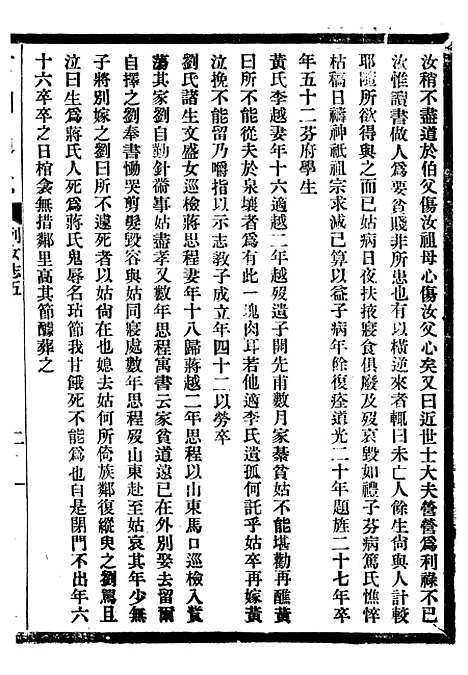 汝稍不盡道於伯父傷汝祖母心傷汝父心矣又曰近世士大夫營營爲利祿不已
汝惟讀書做人爲要貧賤非所患也有以橫逆來者輒曰未亡人餘生尙與人計較
耶隨所欲得與之而已姑病日夜扶掖寢食俱廢及歿哀毀如禮子芬病篤氏憔悴
枯稿日禱神祇祖宗求減已算以益子病年餘復痊道光二十年題旌二十七年卒
年五十二芬府學生
黃氏李越妻年十六適越二年越歿遺子開先甫數月家綦貧姑不能堪勸再醮黃
曰所不能從夫於泉壤者爲有此一塊肉耳若他適李氏遺孤何託乎姑卒再嫁黃
泣挽不能留乃嚼指以示志教子成立年四十二以勞卒
劉氏諸生文盛女巡檢蔣思程妻年十八歸蔣越二年思程以山東馬口巡檢入貲
蕩其家劉自勤針黹事姑盡孝又數年思程寓書云家貧道遠已在外別娶去留爾
自擇之劉奉書慟哭剪髮毀容與姑同寢處數年思程歿山東赴至姑哀其年少無
子將別嫁之劉曰所不遽死者以姑尙在也媳去姑何所倚族鄰復縱臾之劉罵且
泣曰生爲蔣氏人死爲蔣氏鬼辱名玷節我甘餓死不能爲也自是閉門不出年六
十六卒卒之日棺衾無措鄰里高其節醵葬之
列女志五
二